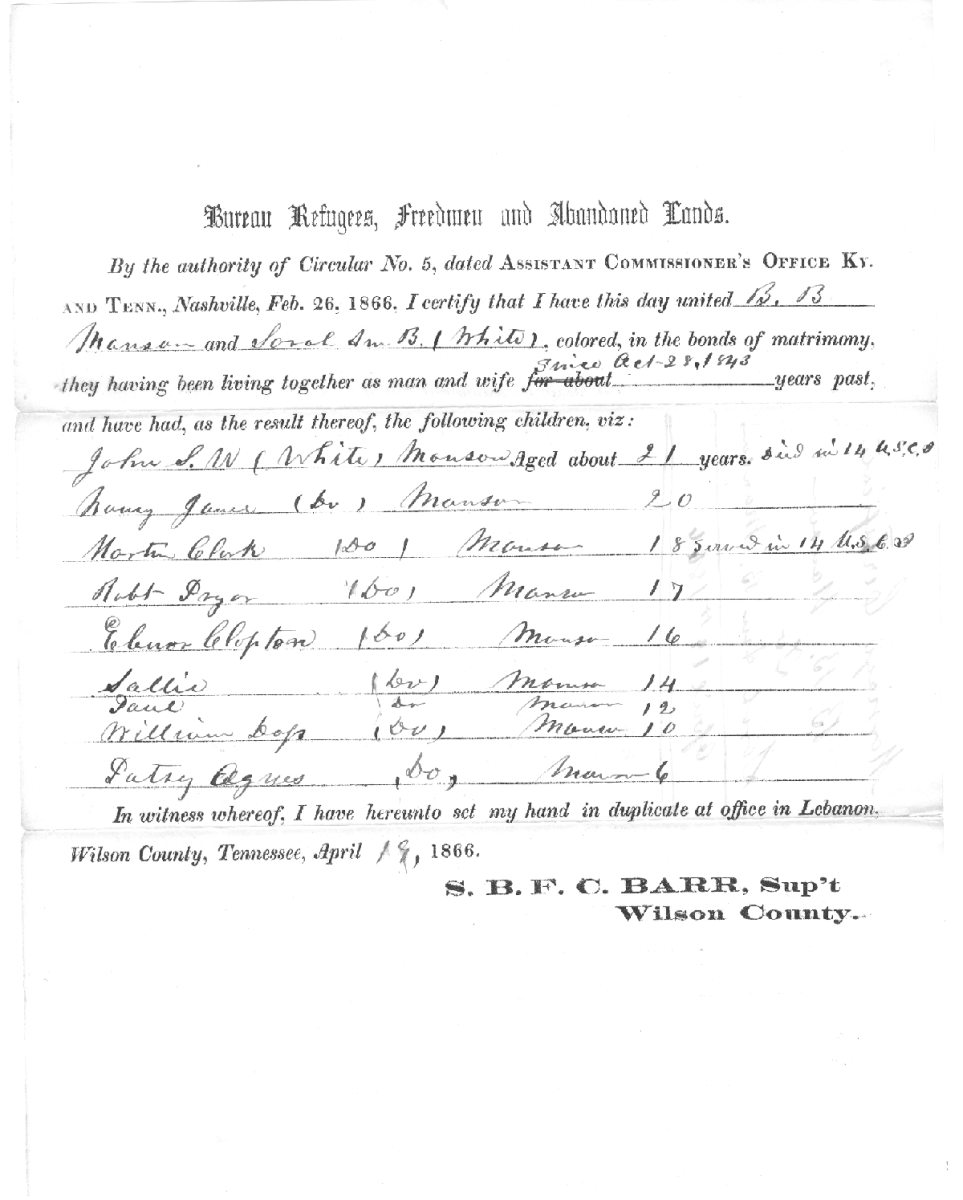 Bureau Refugees, Freedmen and Abandoned Lands.
By the authority of Circular No. 5, dated ASSISTANT COMMISSIONER'S OFFICE KY.
AND TENN., Nashville, Feb. 26, 1866, I certify that I have this day united B. B
Manson and B. (White), colored, in the bonds of matrimony,
since Oct 28, 1843
they having been living together as man and wife for about years past,
and have had, as the result thereof, the following children, viz:
John S. W (White) Manson Aged about 21 years. Died in 14 U.S.C.I
Nancy Jane (Do) Manson 20
Martin Clark (Do) Manson 18 Served in 14 U.S.C.I
Robt Pryor (Do) Manson 17
Elenor Clopton (Do) Manson 16
Sallie (Do) Manson 14
Paul Do Manson 12
William (Do) Manson 10
Patsey Agnes (Do) Manson 6
In witness whereof, I have hereunto set my hand in duplicate at office in Lebanon,
Wilson County, Tennessee, April 19, 1866.
S. B. F. C. BARR, Sup't
Wilson County.